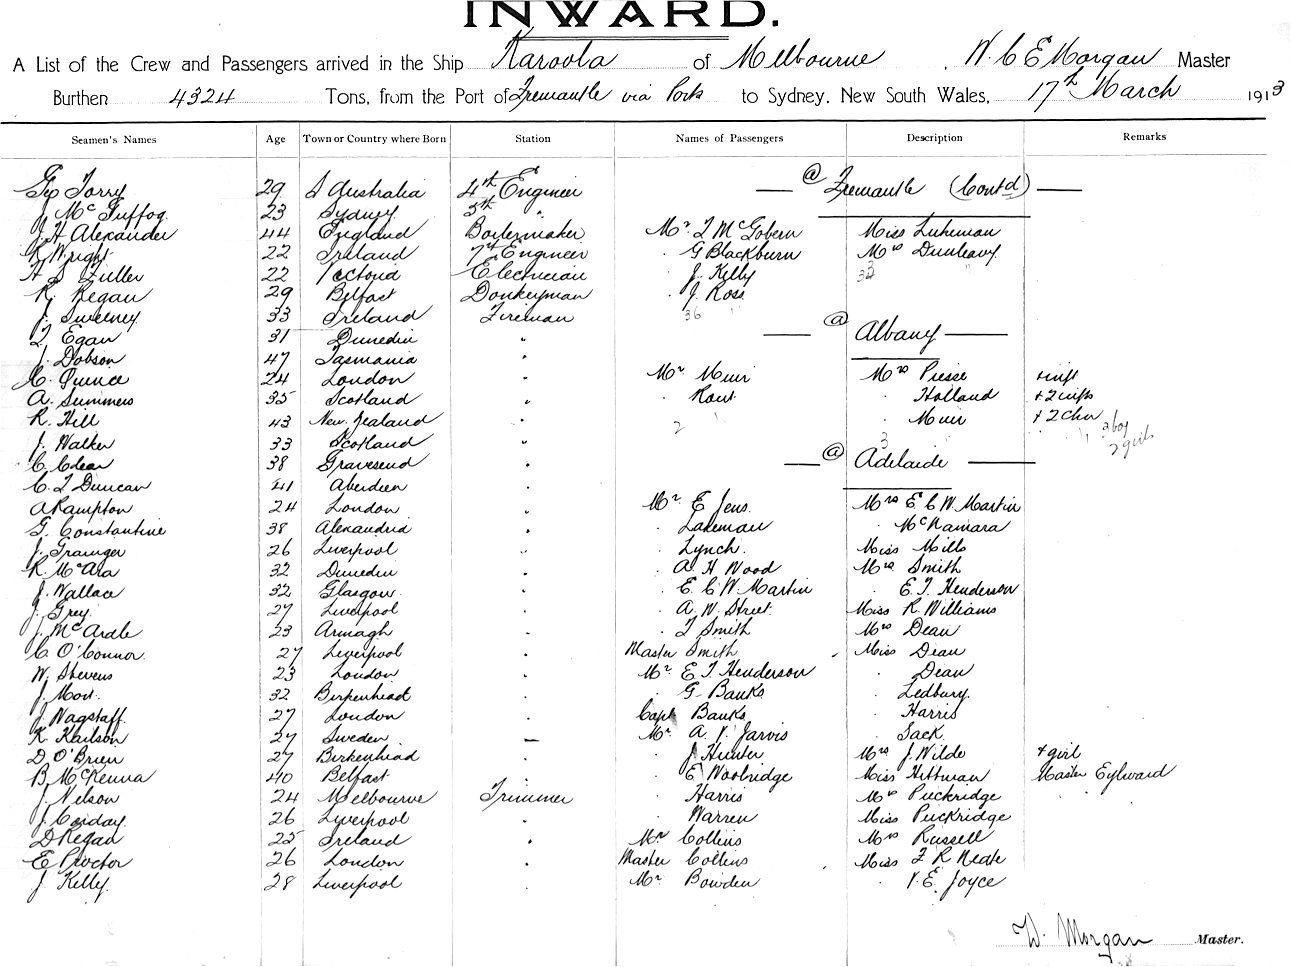 INWARD.
A List of the Crew and Passengers arrived in the Ship Karoola of Melbourne, W. C E Morgan Master
Burthen 4324 Tons, from the Port of Fremantle via Ports to Sydney, New South Wales, 17th March 1913
Seamen's Names Age Town or Country where Born Station Names of Passengers Description Remarks
Geo Torry 29 S Australia 4th Engineer — @ Fremantle (Contd) —
J. McGuffog. 23 Sydney. 5th "
J. H Alexander 44 England Boilermaker Mr. T McGobern Miss Lukeman
R Wright 22 Ireland 7th Engineer " G Blackburn Mrs Dunleavy
H S Fuller 22 Victoria Electrician " J. Kelly 32
R. Regan 29 Belfast Donkeyman " J. Ross
J. Sweeney. 33 Ireland Fireman 36
T. Egan 31 Dunedin " — @ Albany —
J. Dobson 47 Tasmania "
C. Quince 24 London " Mr Muir Mrs Piesse + inft
A. Summers 35 Scotland " Rout " Holland + 2 infts
R. Hill 43 New Zealand " 2 " Muir + 2 Chn 2 boy
J. Walker 33 Scotland " 3 2 girls
C. Clear 38 Gravesend " — @ Adelaide —
C. T Duncan 41 Aberdeen "
A Rampton 24 London " Mr. E Jens. Mrs E C W. Martin
G. Constantine 38 Alexandria " " Lakeman " McNamara
J. Grainger 26 Liverpool " " Lynch. Miss Mills
R. McAra 32 Dunedin " " A H Wood Mrs Smith
J. Wallace 32 Glasgow. " " E. C W Martin " E. T. Henderson
J. Grey. 27 Liverpool " " A. W. Street. Miss R. Williams
J. McArdle 23 Armagh " " T Smith Mrs Dean
C. O'Connor. 27 Liverpool " Master Smith Miss Dean
W. Stevens 23 London " Mr E. T. Henderson " Dean
J. Mort. 32 Birkenhead " " G Banks " Ledbury.
J. Wagstaff. 27 London " Capt Banks " Harris
K. Karlson 27 Sweden — Mr A. V. Jarvis " Jack.
D O'Brien 27 Birkenhead " " J Hunter Mrs J. Wilde + girl
B. McKenna 40 Belfast " " E Woolridge Miss Hittman Master Eylward
J. Nelson 24 Melbourne Trimmer " Harris Mrs Puckridge
J. Corday. 26 Liverpool " " Warren Miss Puckridge
D Regan 25 Ireland " Mr Collins Mrs Russell
E Proctor 26 London " Master Collins Miss F. R Neate
J. Kelly. 28 Liverpool " Mr Bowden " V. E. Joyce
W. Morgan Master.